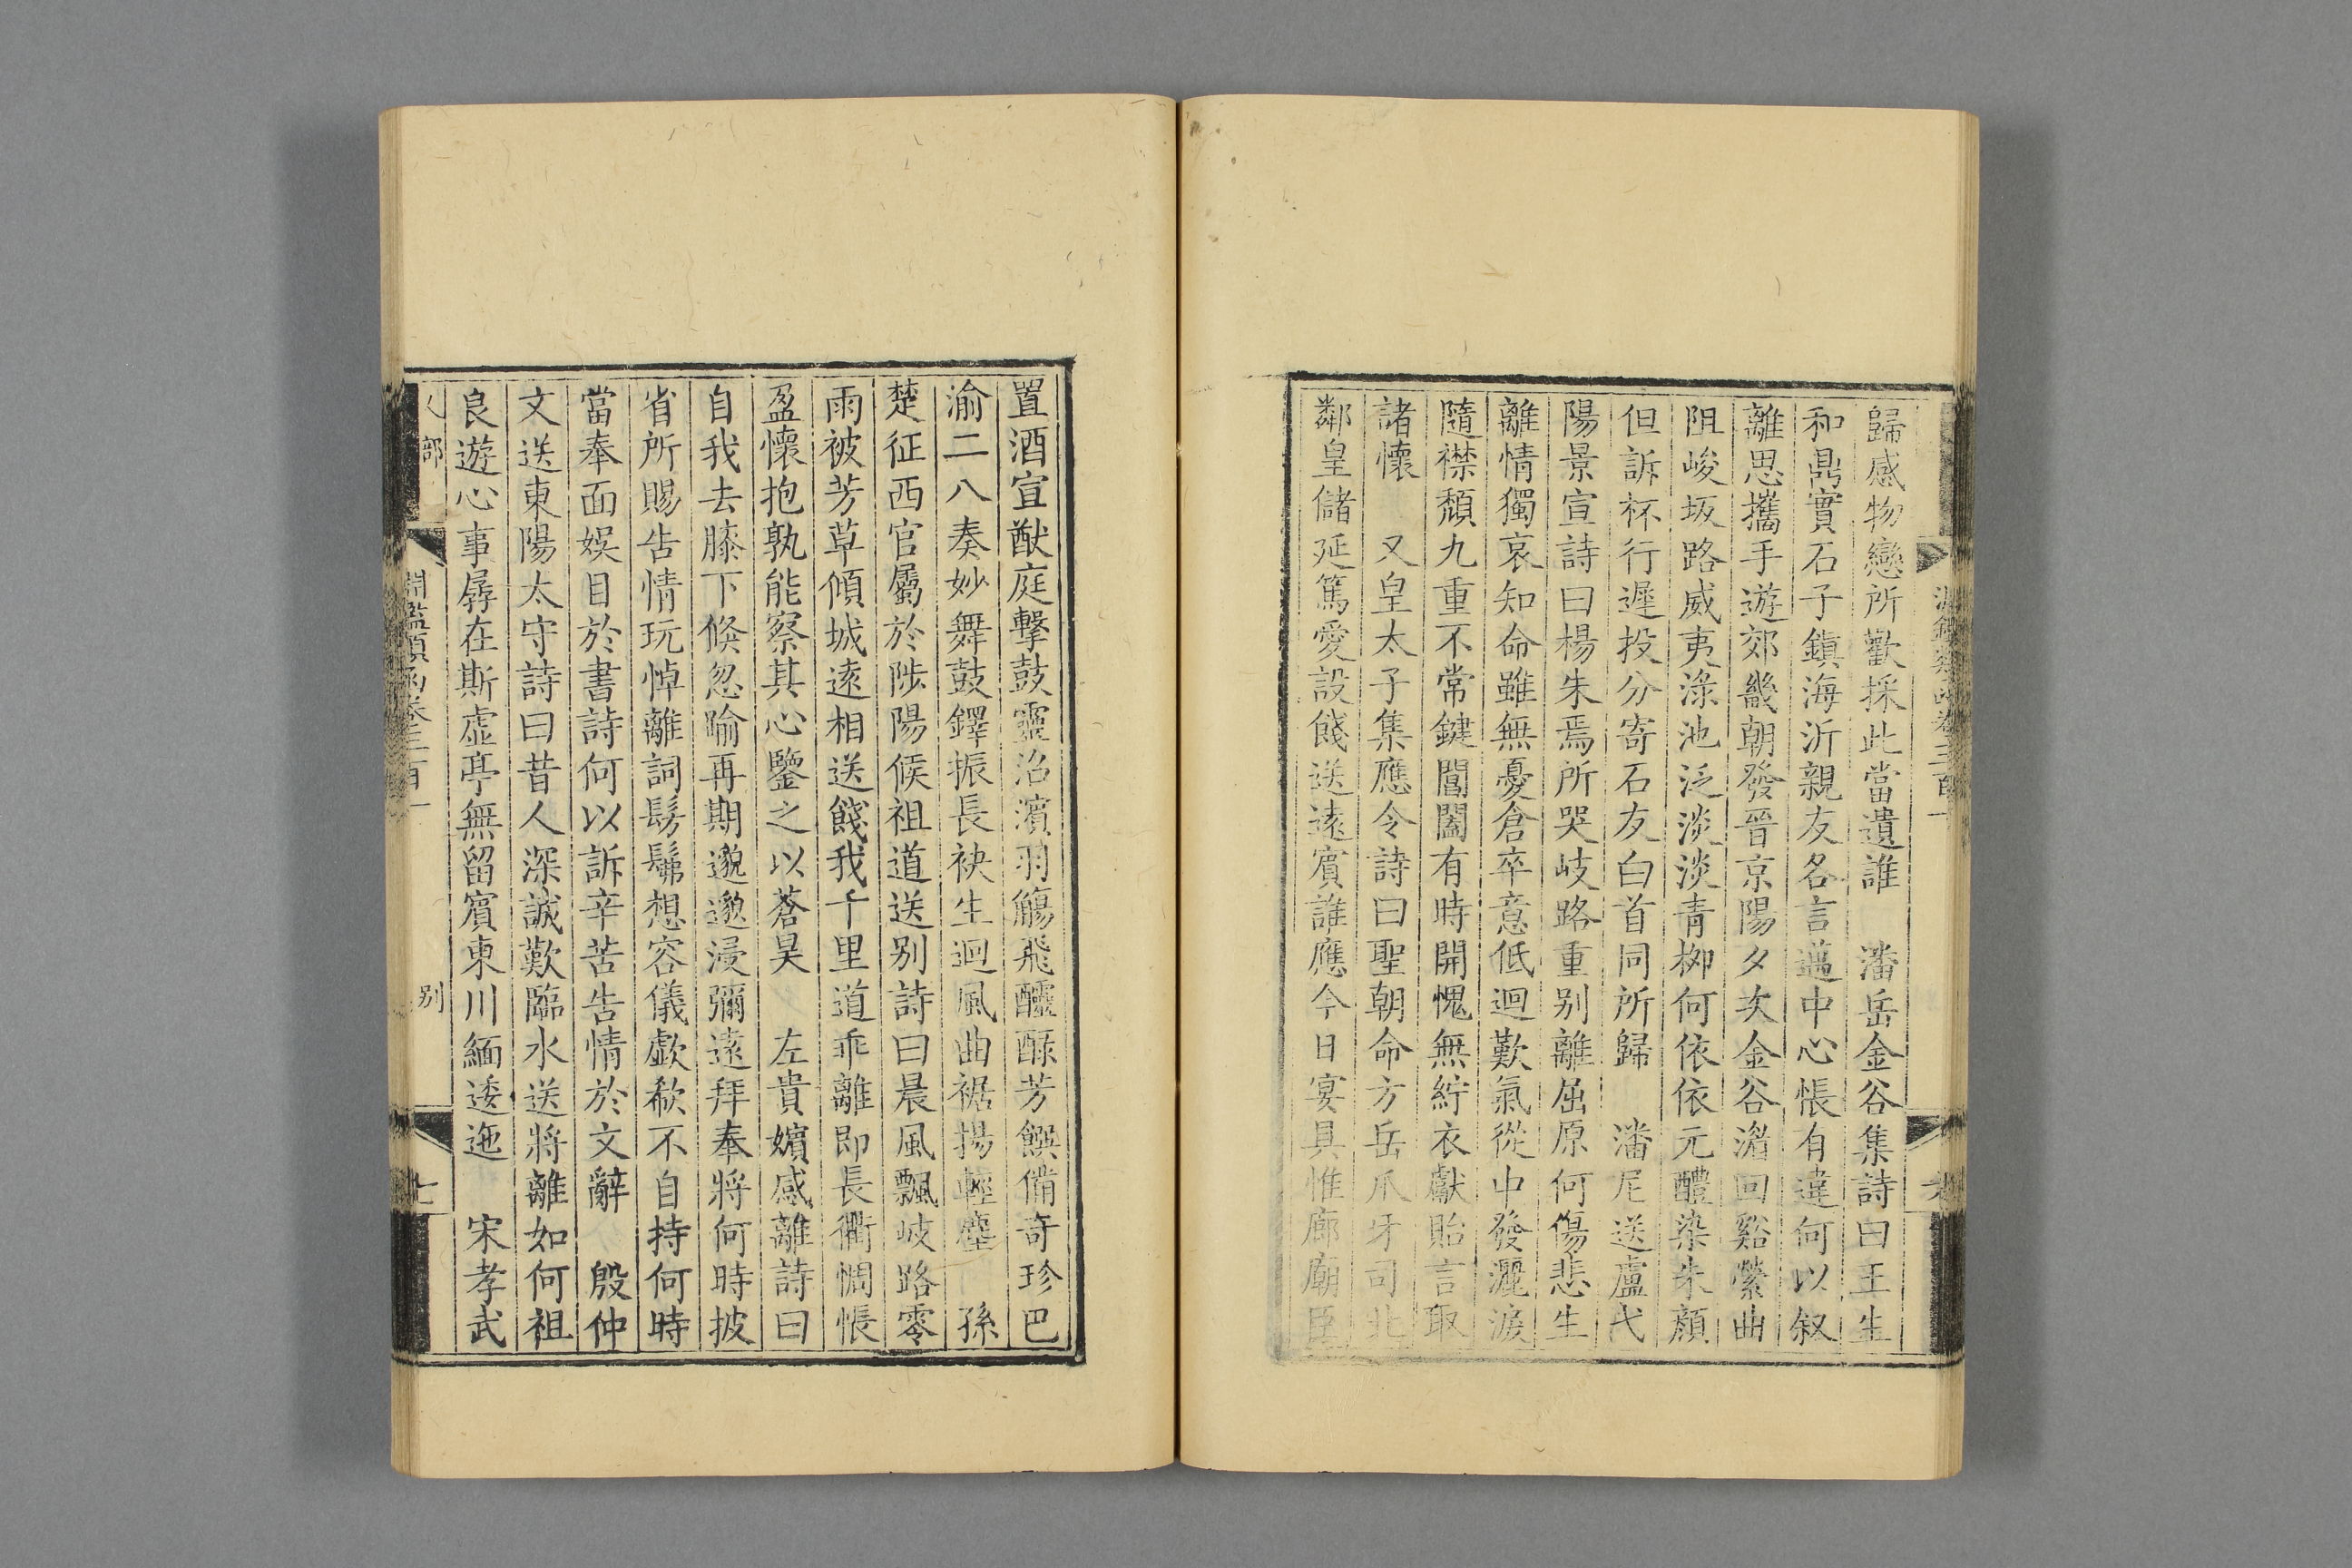 歸感物戀所歡採此當遺誰　潘岳金谷集詩曰王生
和鼎實石子鎮海沂親友各言邁中心悵有違何以叙
離思攜手遊郊畿朝發晉京陽夕次金谷湄回谿縈曲
阻峻坂路威夷淥池泛淡淡青柳何依依元醴染朱顏
但訴杯行遲投分寄石友白首同所歸　潘尼送盧弋
陽景宣詩曰楊朱焉所哭岐路重别離屈原何傷悲生
離情獨哀知命雖無憂倉卒意低迴歎氣從中發灑淚
隨襟頽九重不常鍵閶闔有時開愧無紵衣獻貽言取
諸懷　又皇太子集應令詩曰聖朝命方岳爪牙司北
鄰皇儲延篤愛設餞送遠賓誰應今日宴具惟廊廟臣
置酒宣猷庭擊鼓靈沼濱羽觴飛醽醁芳饌備奇珍巴
渝二八奏妙舞鼓鐸振長袂生迴風曲裾揚輕塵　孫
楚征西官屬於陟陽候祖道送别詩曰晨風飄岐路零
雨被芳草傾城遠相送餞我千里道乖離即長衢惆悵
盈懷抱孰能察其心鑒之以蒼昊　左貴嬪感離詩曰
自我去膝下倐忽踰再期邈邈浸彌遠拜奉將何時披
省所賜告情玩悼離詞髣髴想容儀歔欷不自持何時
當奉面娛目於書詩何以訴辛苦告情於文辭　殷仲
文送東陽太守詩曰昔人深誠歎臨水送將離如何祖
良遊心事孱在斯虛亭無留賓東川緬逶迤　宋孝武
部
淵鑑類函卷三百一
别
七